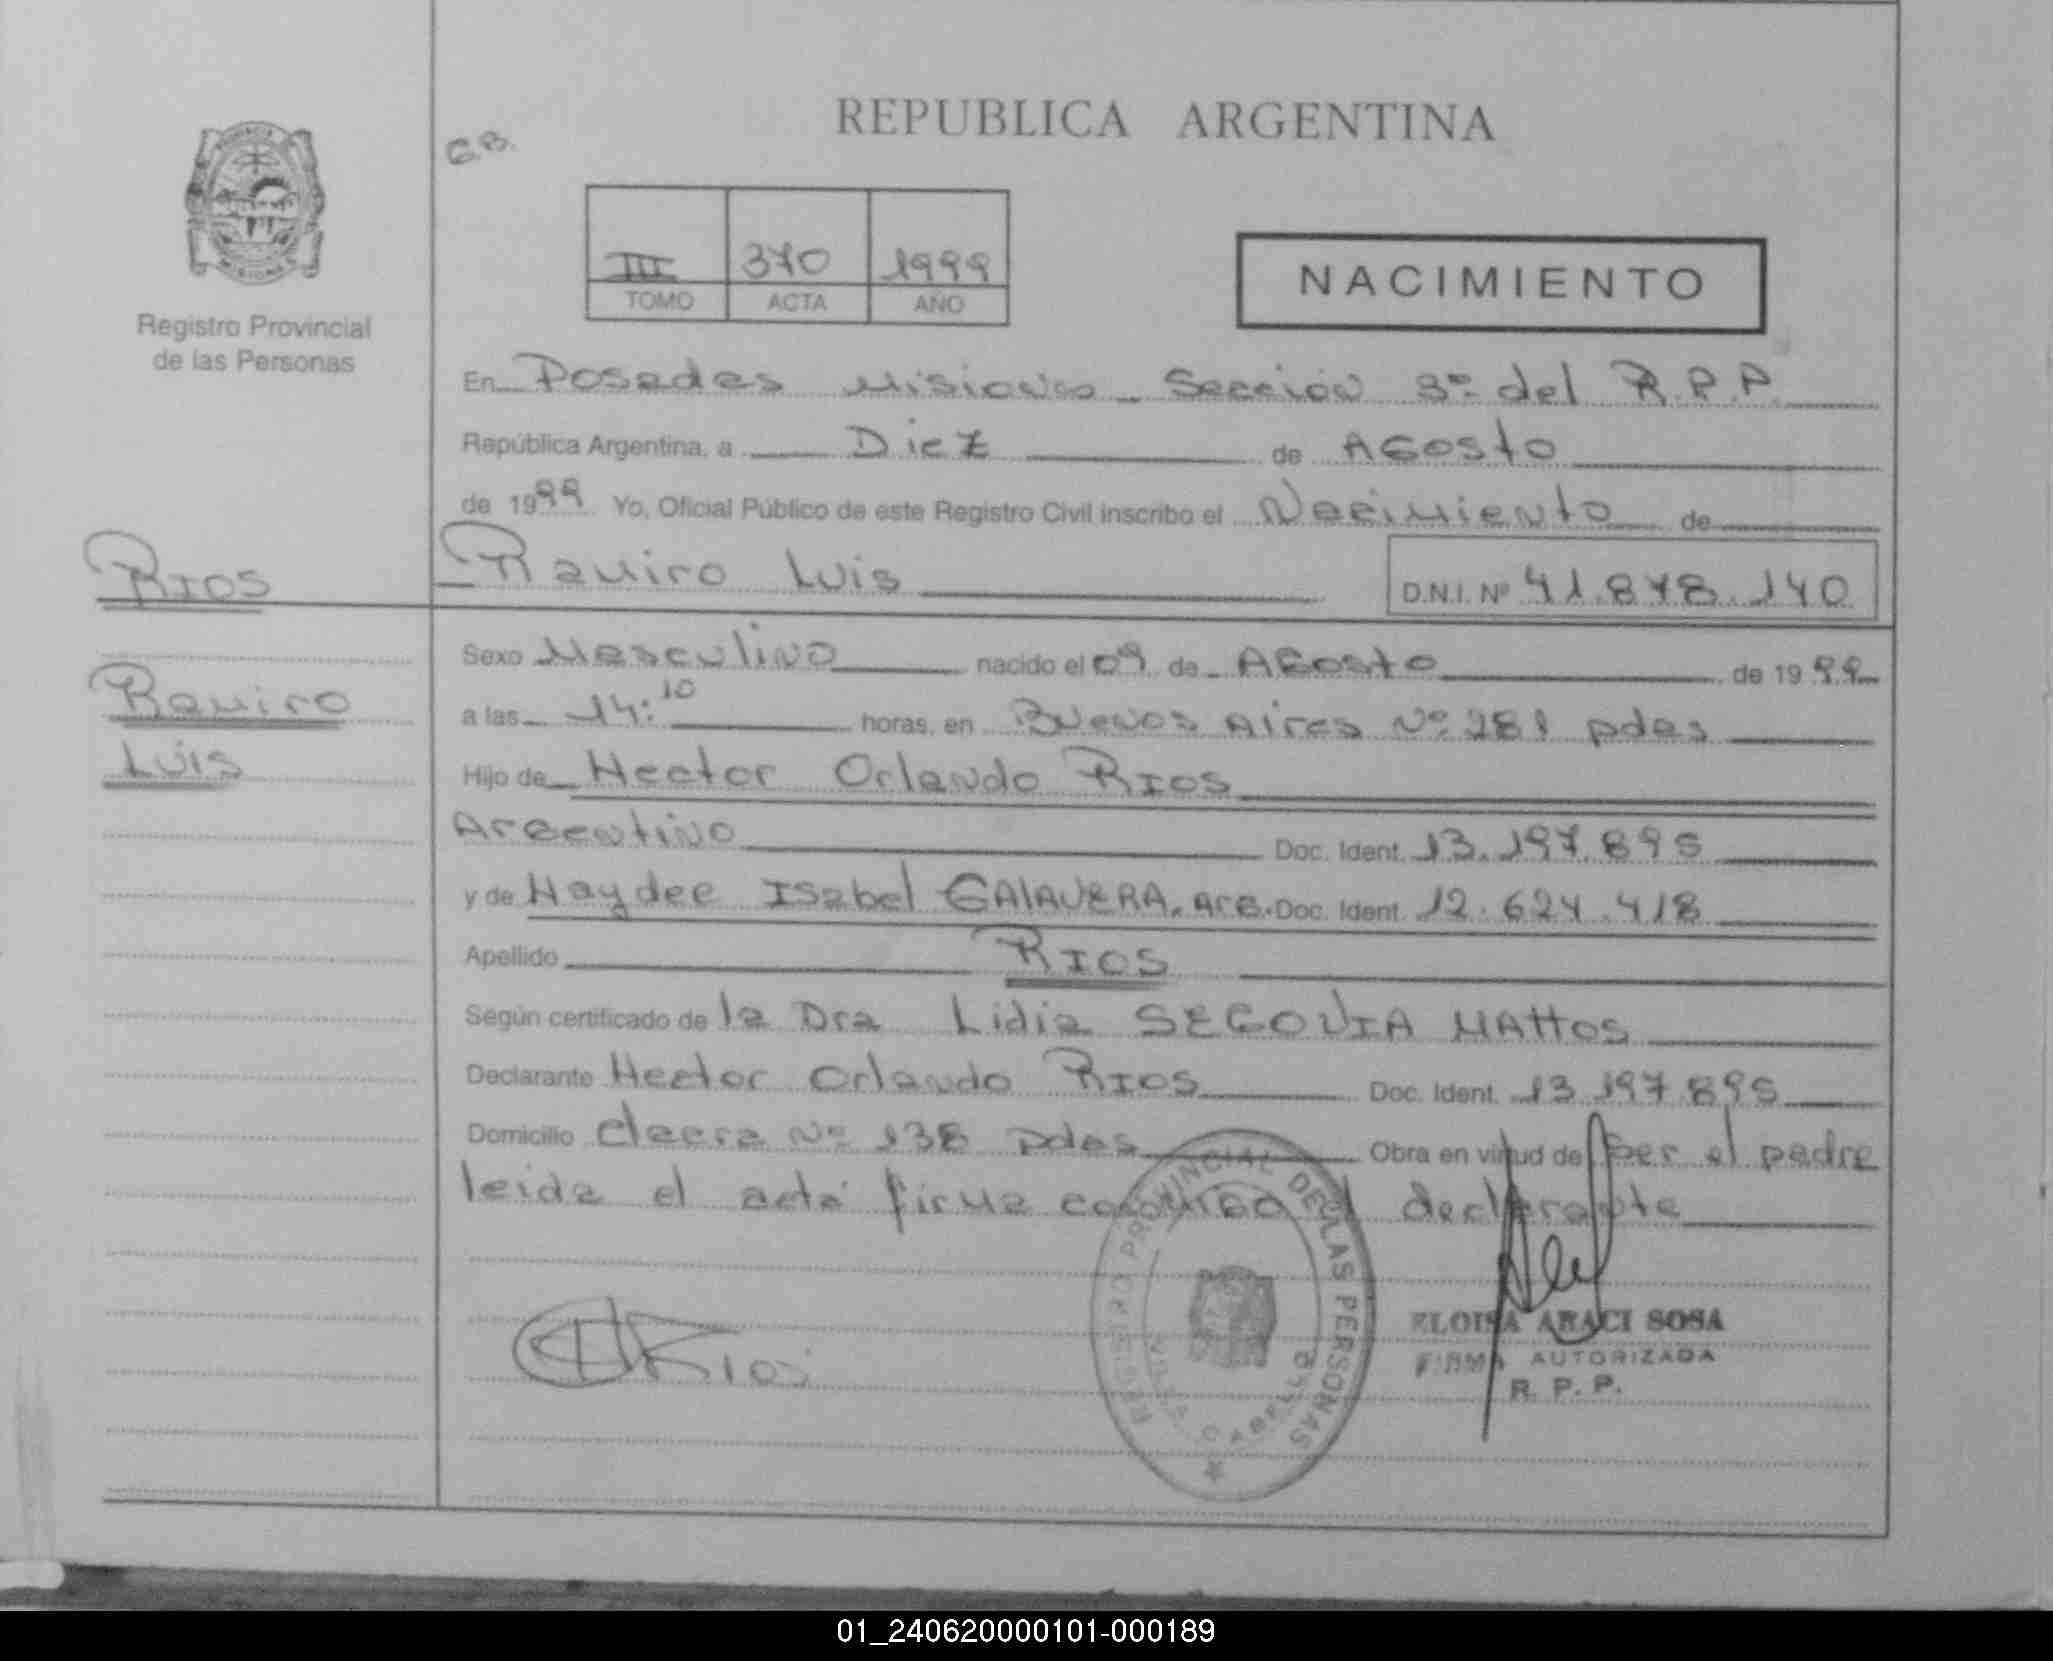 REPUBLICA ARGENTINA
G.B.
III 370 1999
TOMO ACTA AÑO
NACIMIENTO
Registro Provincial
de las Personas
En Posadas Misiones - Sección 3ª del R.P.P.
República Argentina, a Diez de Agosto
de 1999 Yo, Oficial Público de este Registro Civil inscribo el Nacimiento de
Ramiro Luis D.N.I. Nº 41.878.140
RIOS
Ramiro
Luis
Sexo Masculino nacido el 09 de Agosto de 1999
a las 14:10 horas, en Buenos Aires Nº 281 pdas
Hijo de Hector Orlando RIOS
Argentino Doc. Ident. 13.197.895
y de Haydee Isabel GALAVERA. Arg. Doc. Ident. 12.624.418
Apellido RIOS
Según certificado de la Dra Lidia SEGOVIA MATTOS
Declarante Hector Orlando RIOS Doc. Ident. 13.197.895
Domicilio chacra Nº 138 pdas Obra en virtud de ser el padre
leida el acta firma conmigo el declarante
REGISTRO PROVINCIAL DE LAS PERSONAS
VILLA CABELLO
H Rios
ELOISA ARACI SOSA
FIRMA AUTORIZADA
R. P. P.
01_240620000101-000189